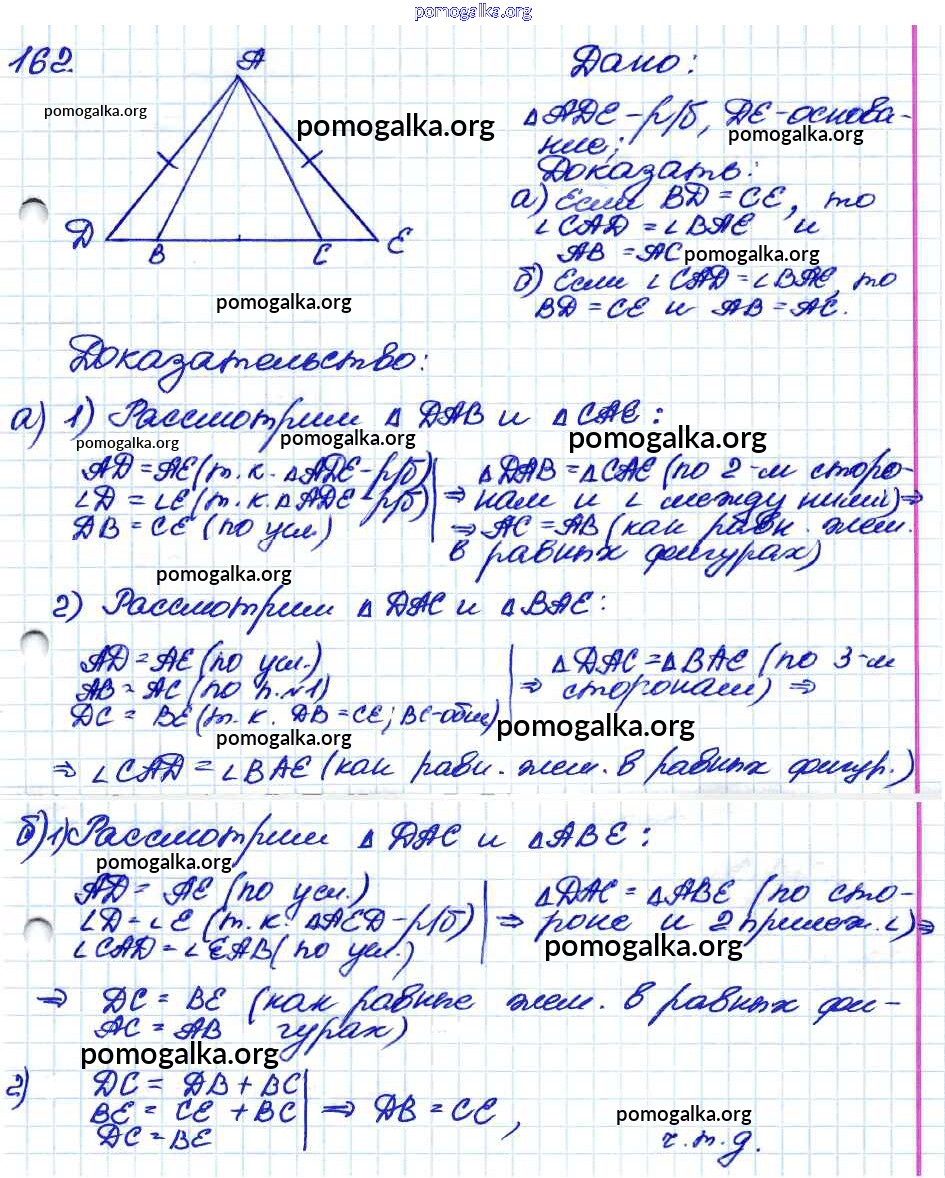 pomogalka.org
162.
A
Д
B
C
E
pomogalka.org
pomogalka.org
pomogalka.org
Дано:
△АДЕ – р/б, ДЕ – основа-
ние;
pomogalka.org
Доказать:
а) Если BД = CE, то
∠CAД = ∠BAE и
AB = AC
pomogalka.org
б) Если ∠CAД = ∠BAE, то
BД = CE и AB = AC.
Доказательство:
а) 1) Рассмотрим △ ДAB и △CAE:
pomogalka.org
pomogalka.org
pomogalka.org
AД = AE (т.к. △AДE – р/б)
∠Д = ∠E (т.к. △AДE – р/б)
ДB = CE (по усл.)
△ДAB = △CAE (по 2-м сторо-
⇒ нам и ∠ между ними) ⇒
⇒ AC = AB (как равн. элем.
в равных фигурах)
pomogalka.org
2) Рассмотрим △ ДAC и △BAE:
AД = AE (по усл.)
AB = AC (по п. №1)
ДC = BE (т.к. ДB = CE; BC – общ)
△ДAC = △BAE (по 3-м
⇒ сторонам) ⇒
pomogalka.org
pomogalka.org
⇒ ∠CAД = ∠BAE (как равн. элем. в равных фигур.)
б) 1) Рассмотрим △ ДAC и △ABE:
pomogalka.org
AД = AE (по усл.)
∠Д = ∠E (т.к. △AEД – р/б)
∠CAД = ∠EAB (по усл.)
△ДAC = △ABE (по сто-
⇒ роне и 2 прилеж. ∠) ⇒
pomogalka.org
⇒ ДC = BE (как равные элем. в равных фи-
AC = AB гурах)
pomogalka.org
2) ДC = ДB + BC
BE = CE + BC ⇒ ДB = CE,
ДC = BE
pomogalka.org
ч.т.д.